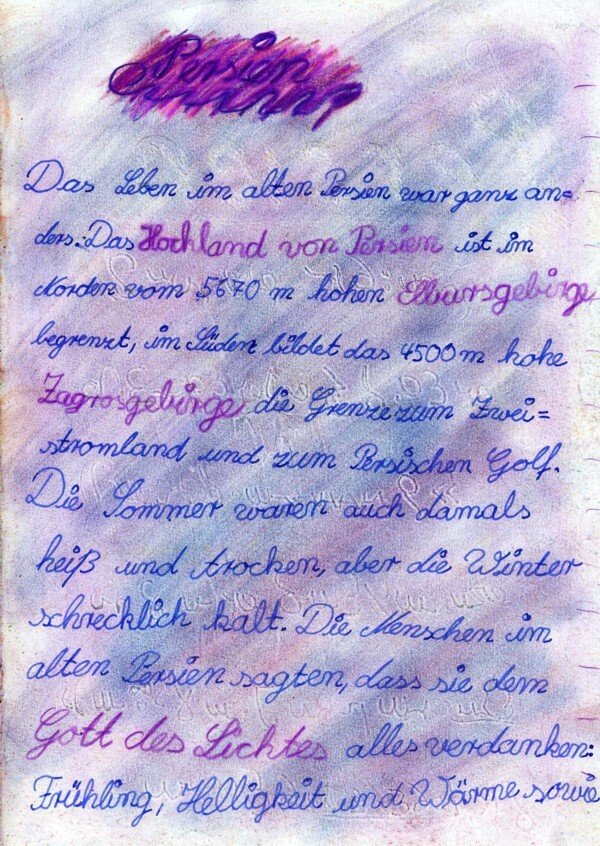 Persien
Das Leben im alten Persien war ganz an=
ders. Das Hochland von Persien ist im
Norden vom 5670 m hohen Elbursgebirge
begrenzt, im Süden bildet das 4500 m hohe
Zagrosgebirge die Grenze zum Zwei=
stromland und zum Persischen Golf.
Die Sommer waren auch damals
heiß und trocken, aber die Winter
schrecklich kalt. Die Menschen im
alten Persien sagten, dass sie dem
Gott des Lichtes alles verdanken:
Frühling, Helligkeit und Wärme sowie